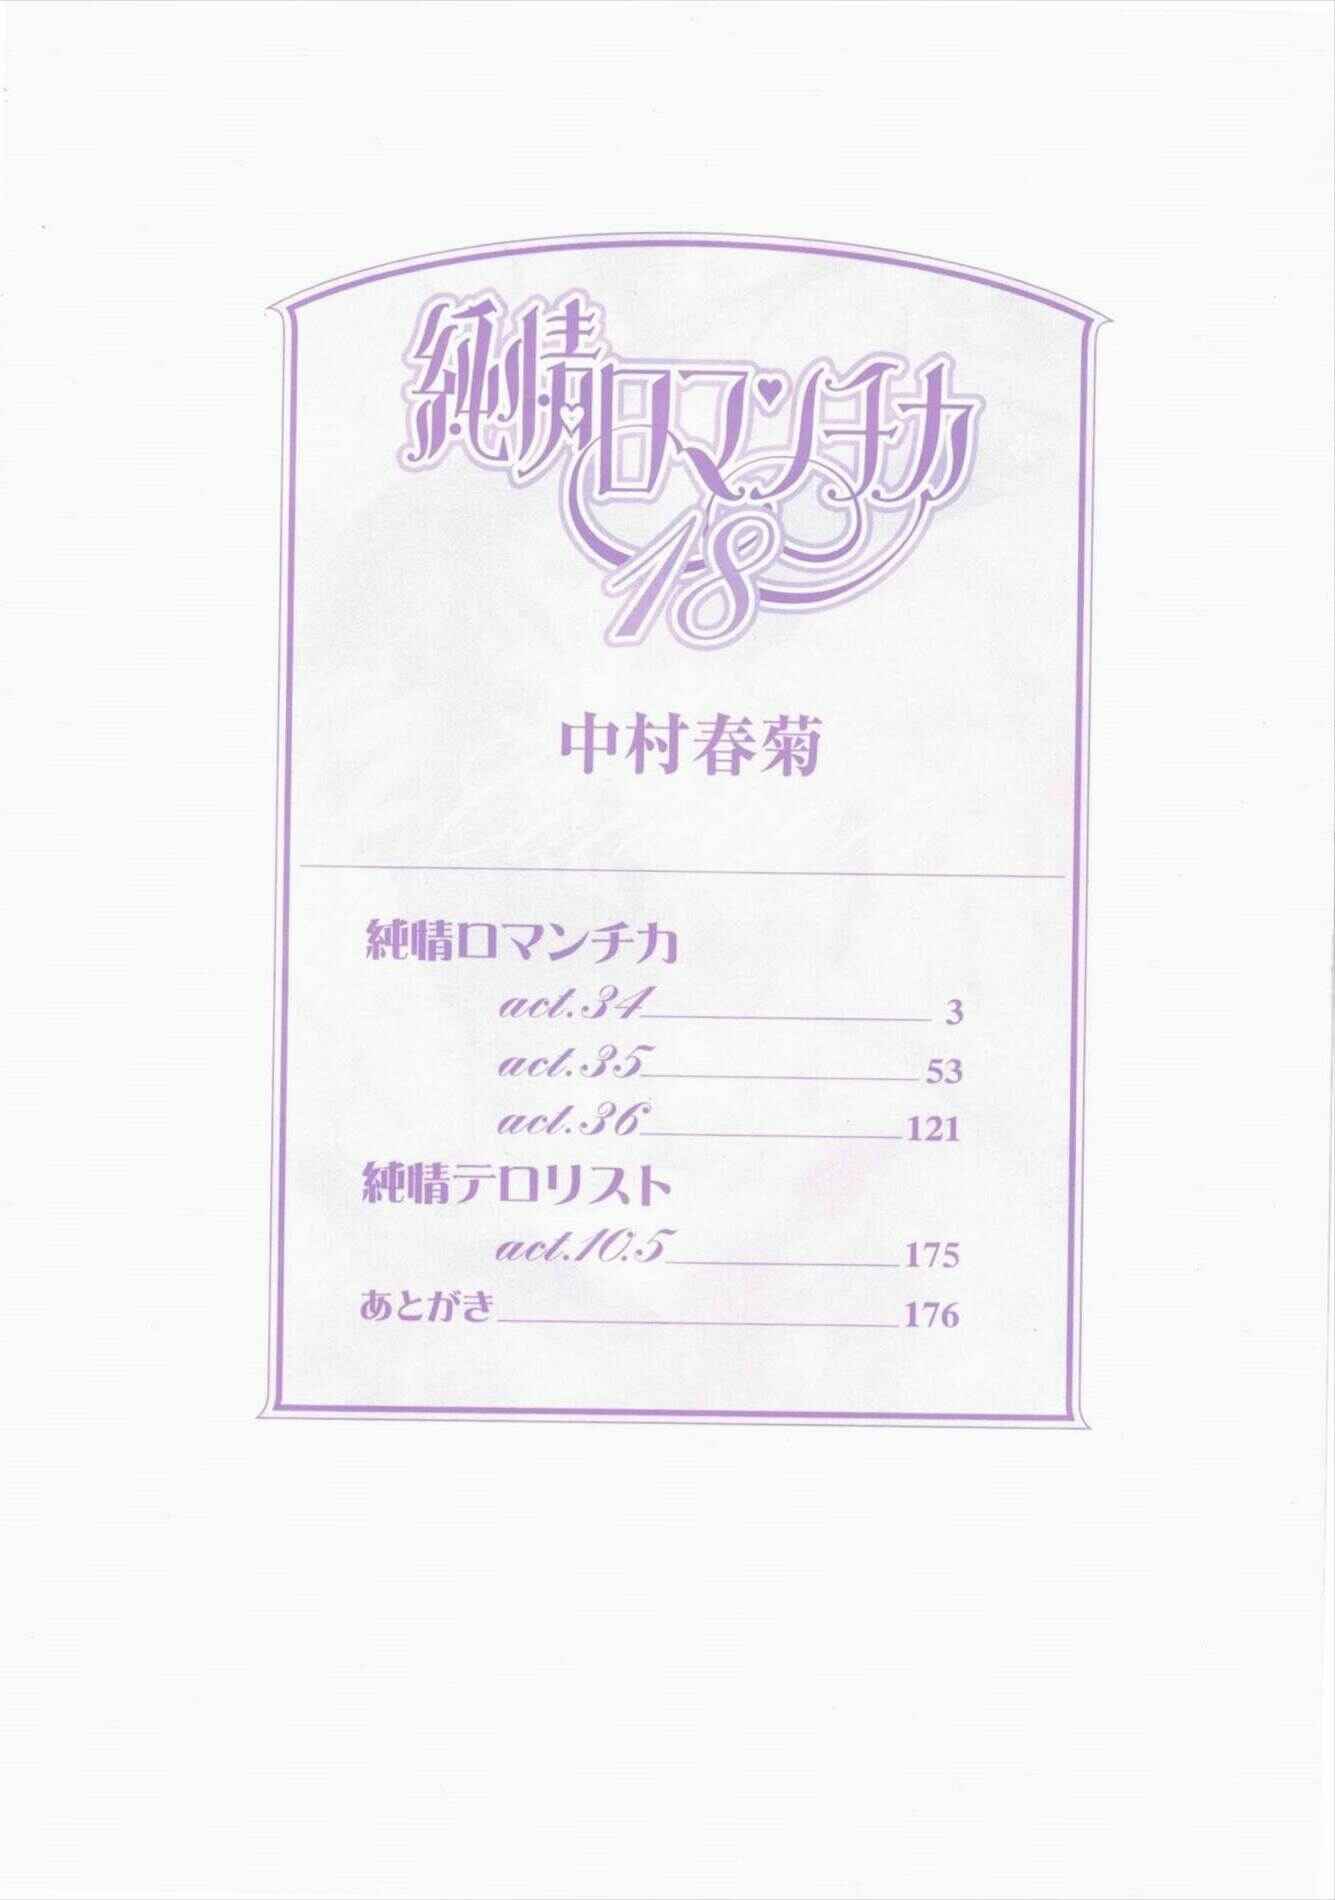 純情ロマンチカ
18
中村春菊
純情ロマンチカ
act.34 3
act.35 53
act.36 121
純情テロリスト
act.10.5 175
あとがき 176